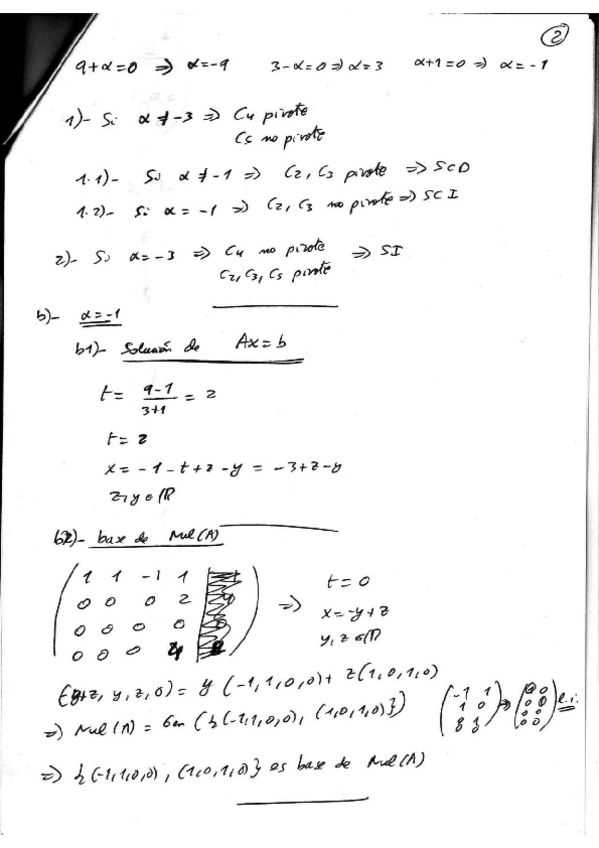 2
9+α=0 ⇒ α=-9 3-α=0 ⇒ α=3 α+1=0 ⇒ α=-1
1)- Si α≠-3 ⇒ C4 pivote
C5 no pivote
1.1)- Si α≠-1 ⇒ C2, C3 pivote ⇒ SCD
1.2)- Si α=-1 ⇒ C2, C3 no pivote ⇒ SCI
2)- Si α=-3 ⇒ C4 no pivote ⇒ SI
C2, C3, C5 pivote
b)- α=-1
b1)- Solución de Ax=b
t= 9-1/3+1 = 2
t=2
x=-1-t+z-y = -3+z-y
z,y∈R
b2)- base de Nul(A)
1 1 -1 1
0 0 0 2
0 0 0 0
0 0 0 4
⇒ t=0
x=-y+z
y,z∈R
(-y+z, y, z, 0) = y(-1,1,0,0)+ z(1,0,1,0)
⇒ Nul(A) = Gen({(-1,1,0,0), (1,0,1,0)})
-1 1
1 0
l.i.
⇒ {(-1,1,0,0), (1,0,1,0)} es base de Nul(A)